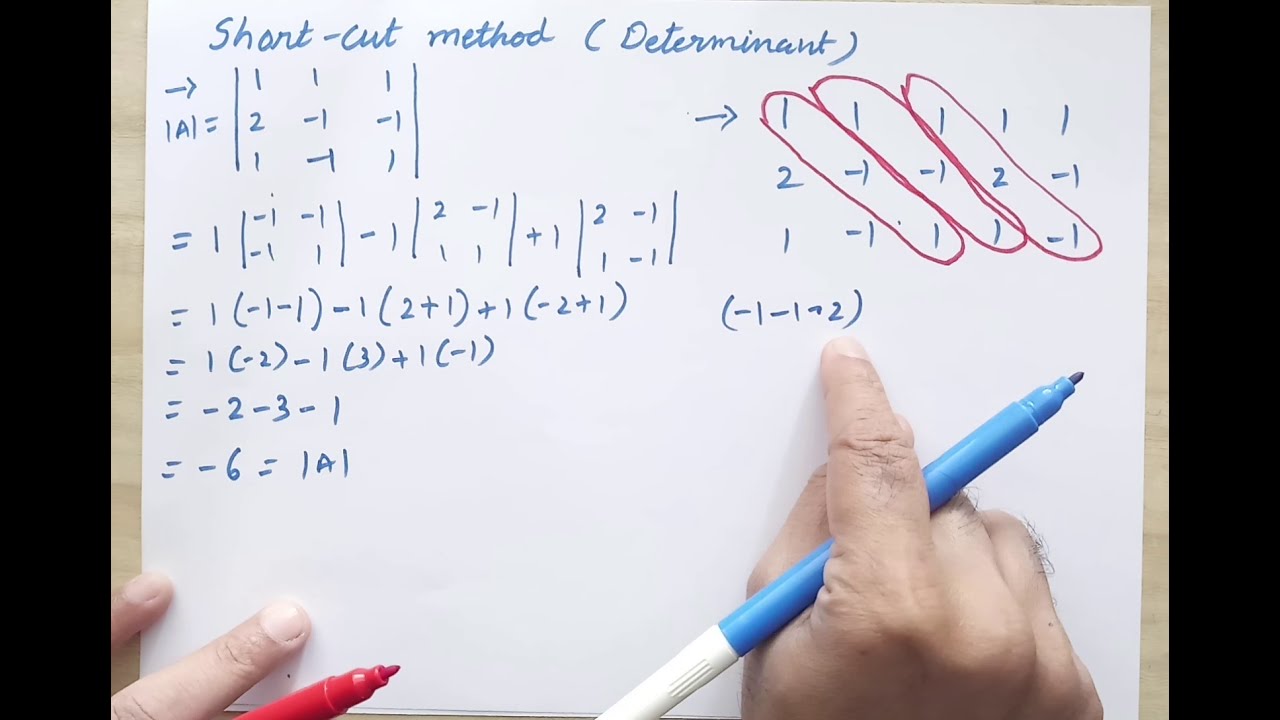 Short-cut method (Determinant)
→
|A| = | 1 1 1 |
| 2 -1 -1 |
| 1 -1 1 |
= 1 | -1 -1 | - 1 | 2 -1 | + 1 | 2 -1 |
| -1 1 | | 1 1 | | 1 -1 |
= 1 (-1-1) - 1 (2+1) + 1 (-2+1)
= 1 (-2) - 1 (3) + 1 (-1)
= -2-3-1
= -6 = |A|
→ 1 1 1 1 1
2 -1 -1 2 -1
1 -1 1 1 -1
(-1-1-2)